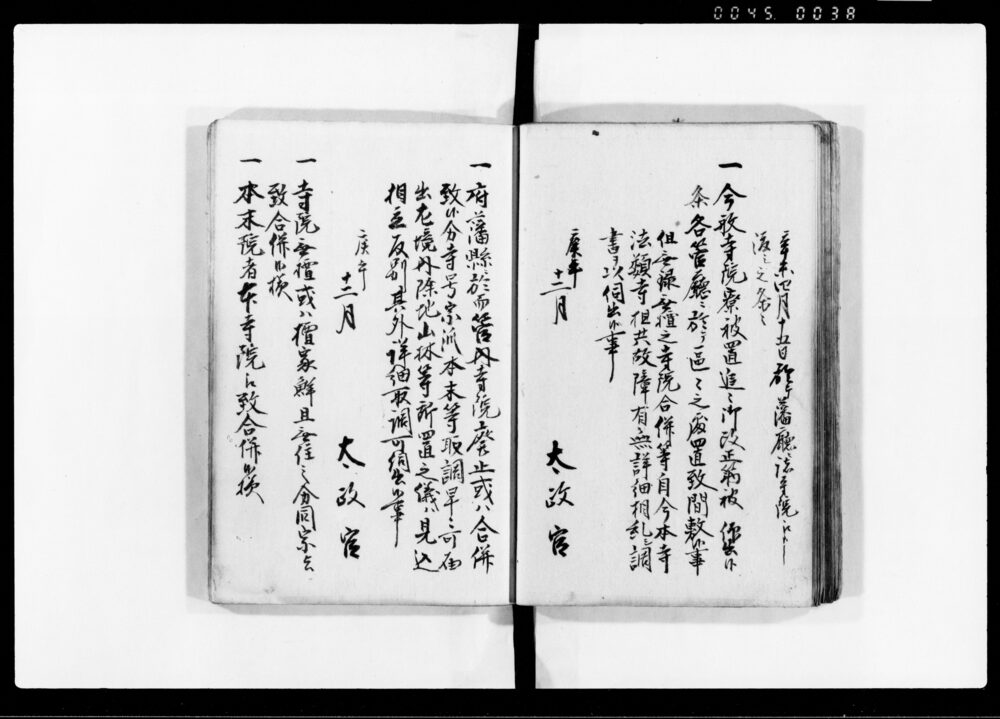 0045. 0038
辛未四月十五日於藩廳諸寺院江
渡之
一 今般寺院寮被置追々御改正筋被 仰出候
条各管廳ニ於テ区々之處置致間敷候事
但無禄無檀之寺院合併等自今本寺
法類寺檀共故障有無詳細相糺シ調
書ヲ以伺出候事
庚午
十二月 太政官
一 府藩縣ニ於而管内寺院廃止或ハ合併
致候分寺号宗派本末等取調早々可届
出尤境内除地山林等所置之儀ハ見込
相立反別其外詳細取調可伺出候事
庚午
十二月 太政官
一 寺院無檀或ハ檀家鮮且無住之分同宗江
致合併候様
一 本末院者本寺院江致合併候様